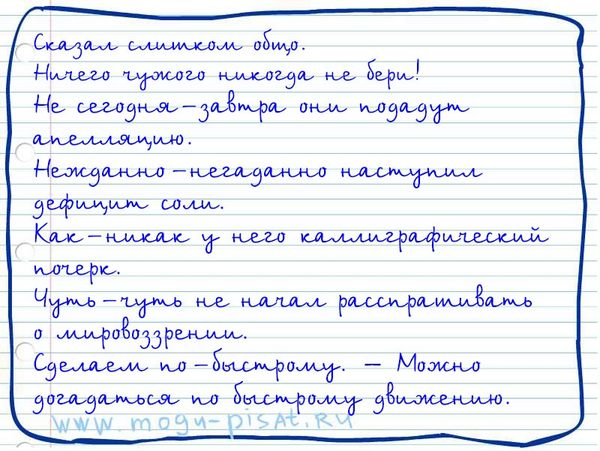 Сказал слишком общо.
Ничего чужого никогда не бери!
Не сегодня – завтра они подадут
апелляцию.
Нежданно – негаданно наступил
дефицит соли.
Как – никак у него каллиграфический
почерк.
Чуть – чуть не начал расспрашивать
о мировоззрении.
Сделаем по – быстрому. – Можно
догадаться по быстрому движению.
www.mogu-pisat.ru